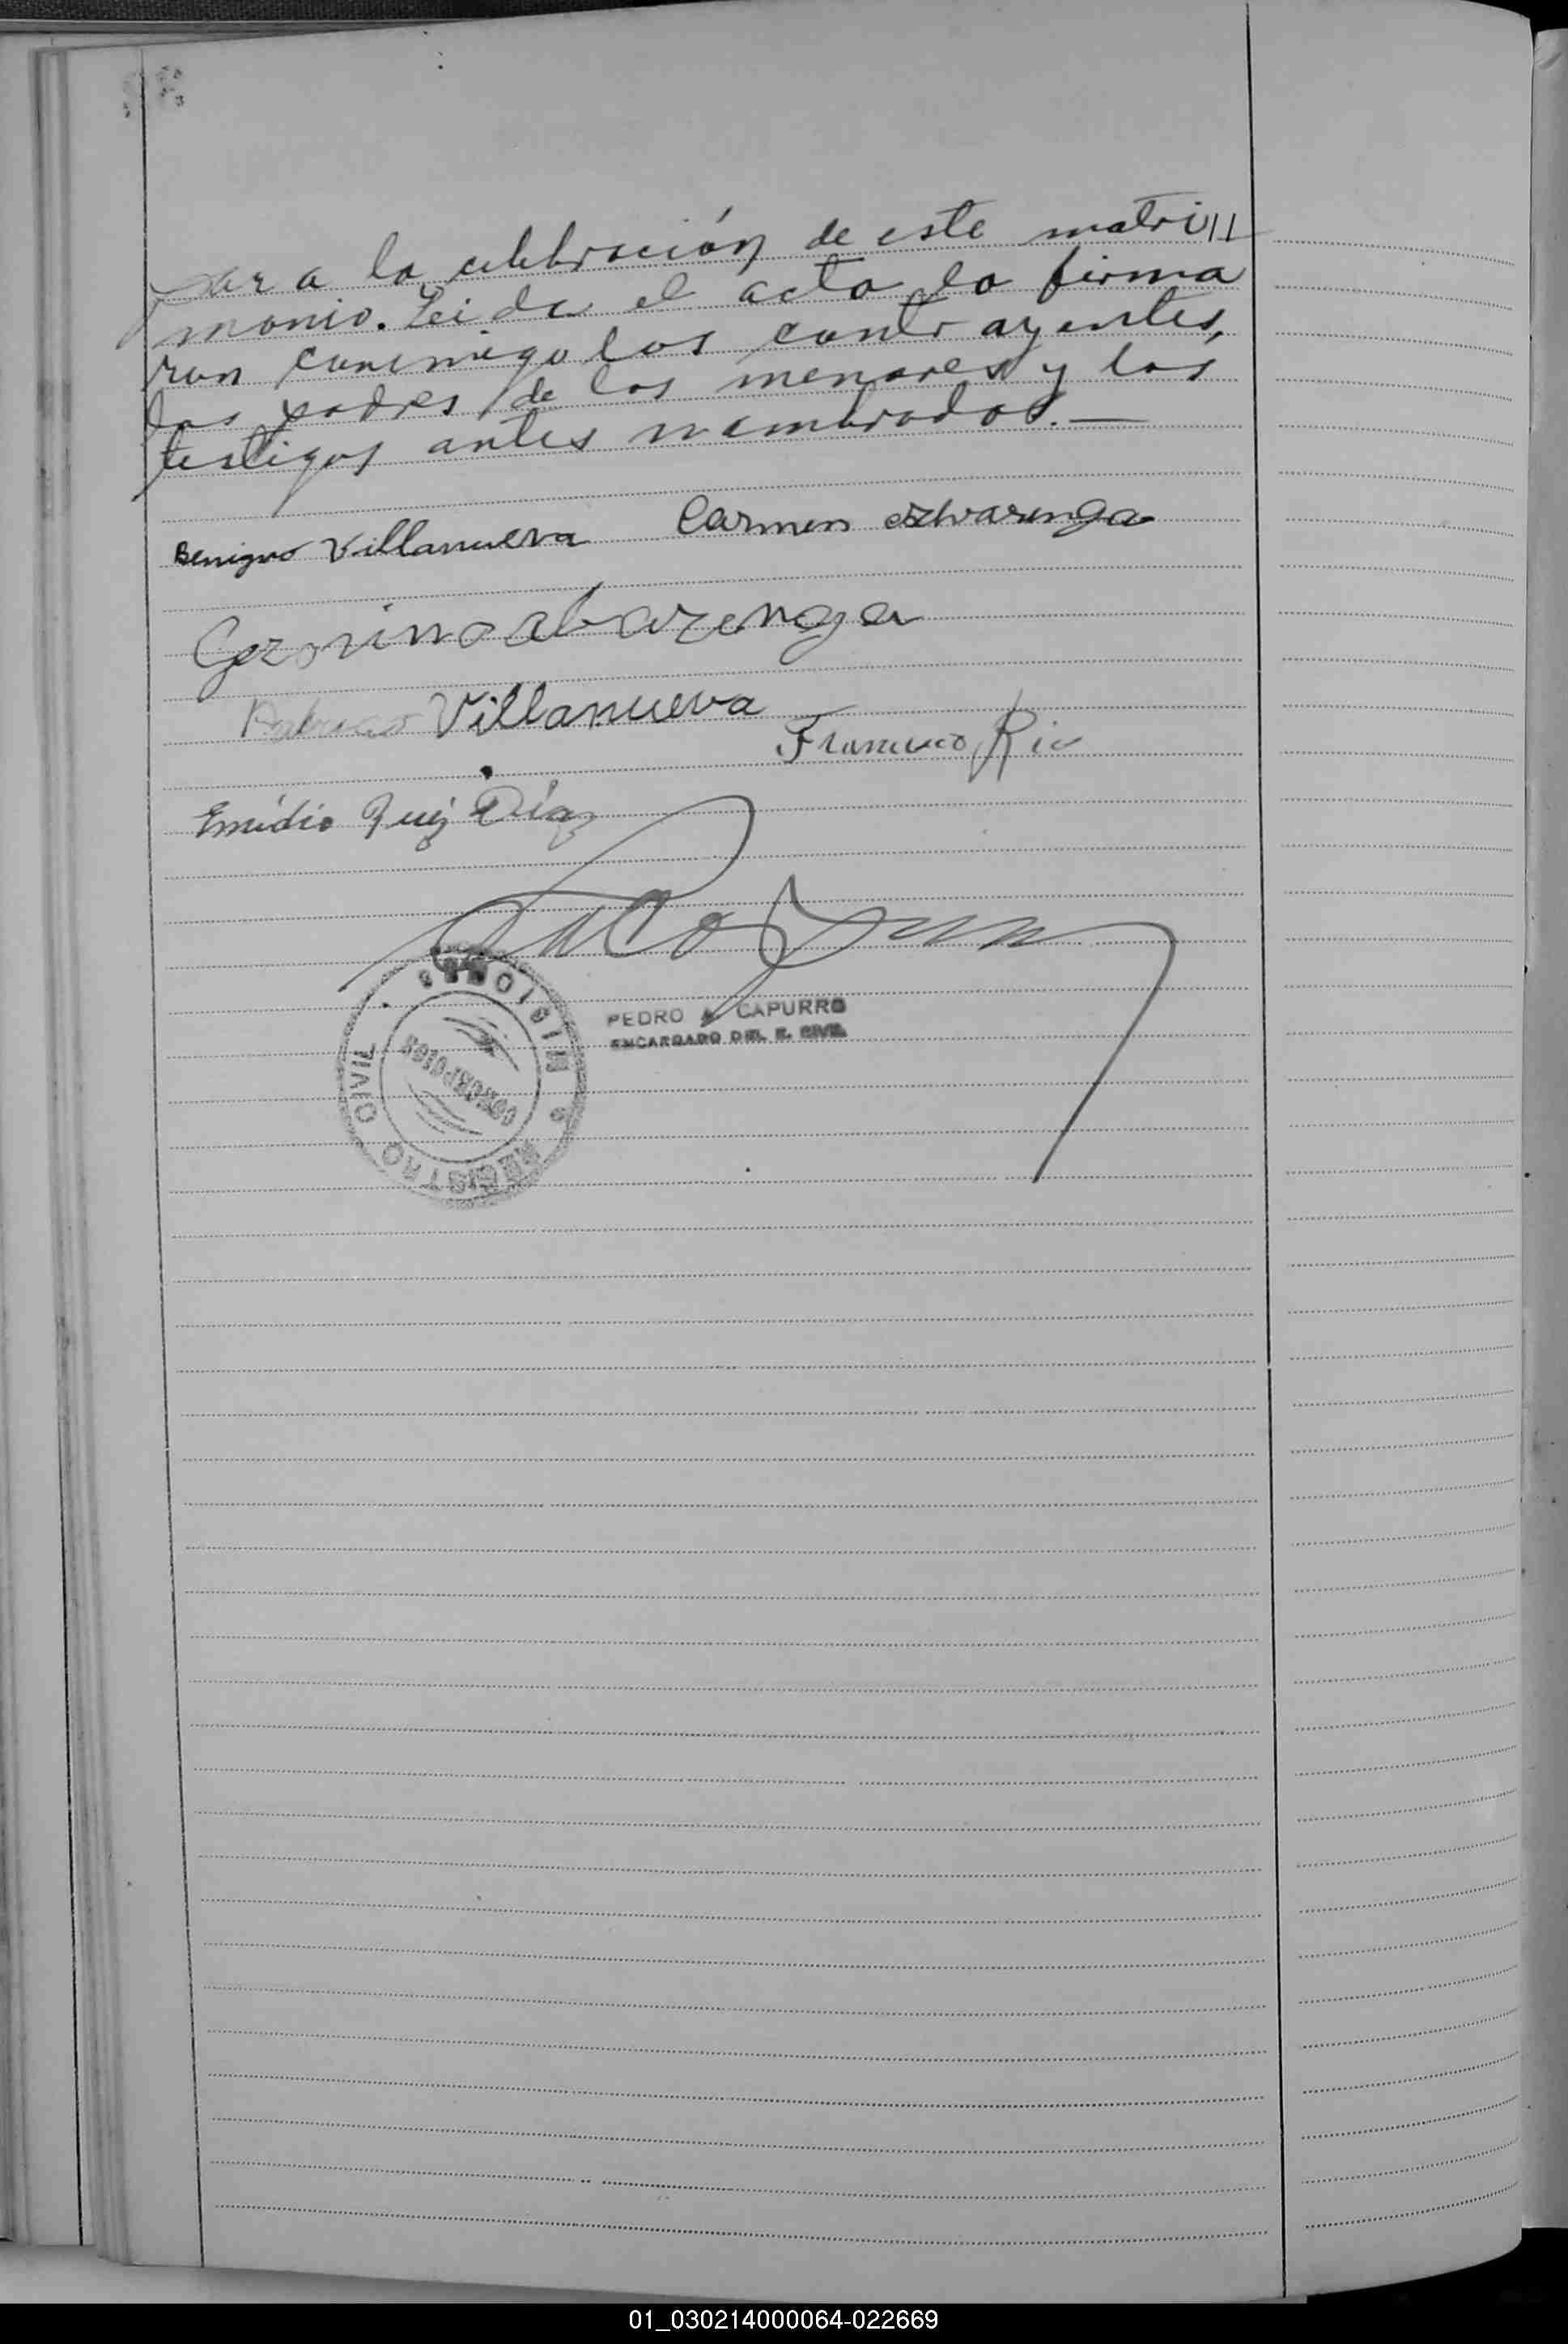 para la celebración de este matri//
monio. Leida el acta la firma
ron conmigo los contrayentes,
los padres de los menores y los
testigos antes nombrados.—
Benigno Villanueva Carmen Alvarenga
Gezorino albarenga
Villanueva
Francisco Rio
Emidio Ruiz Díaz
PEDRO A. CAPURRO
ENCARGADO DEL R. CIVIL
MISIONES
REGISTRO CIVIL
CONCEPCION
01_030214000064-022669